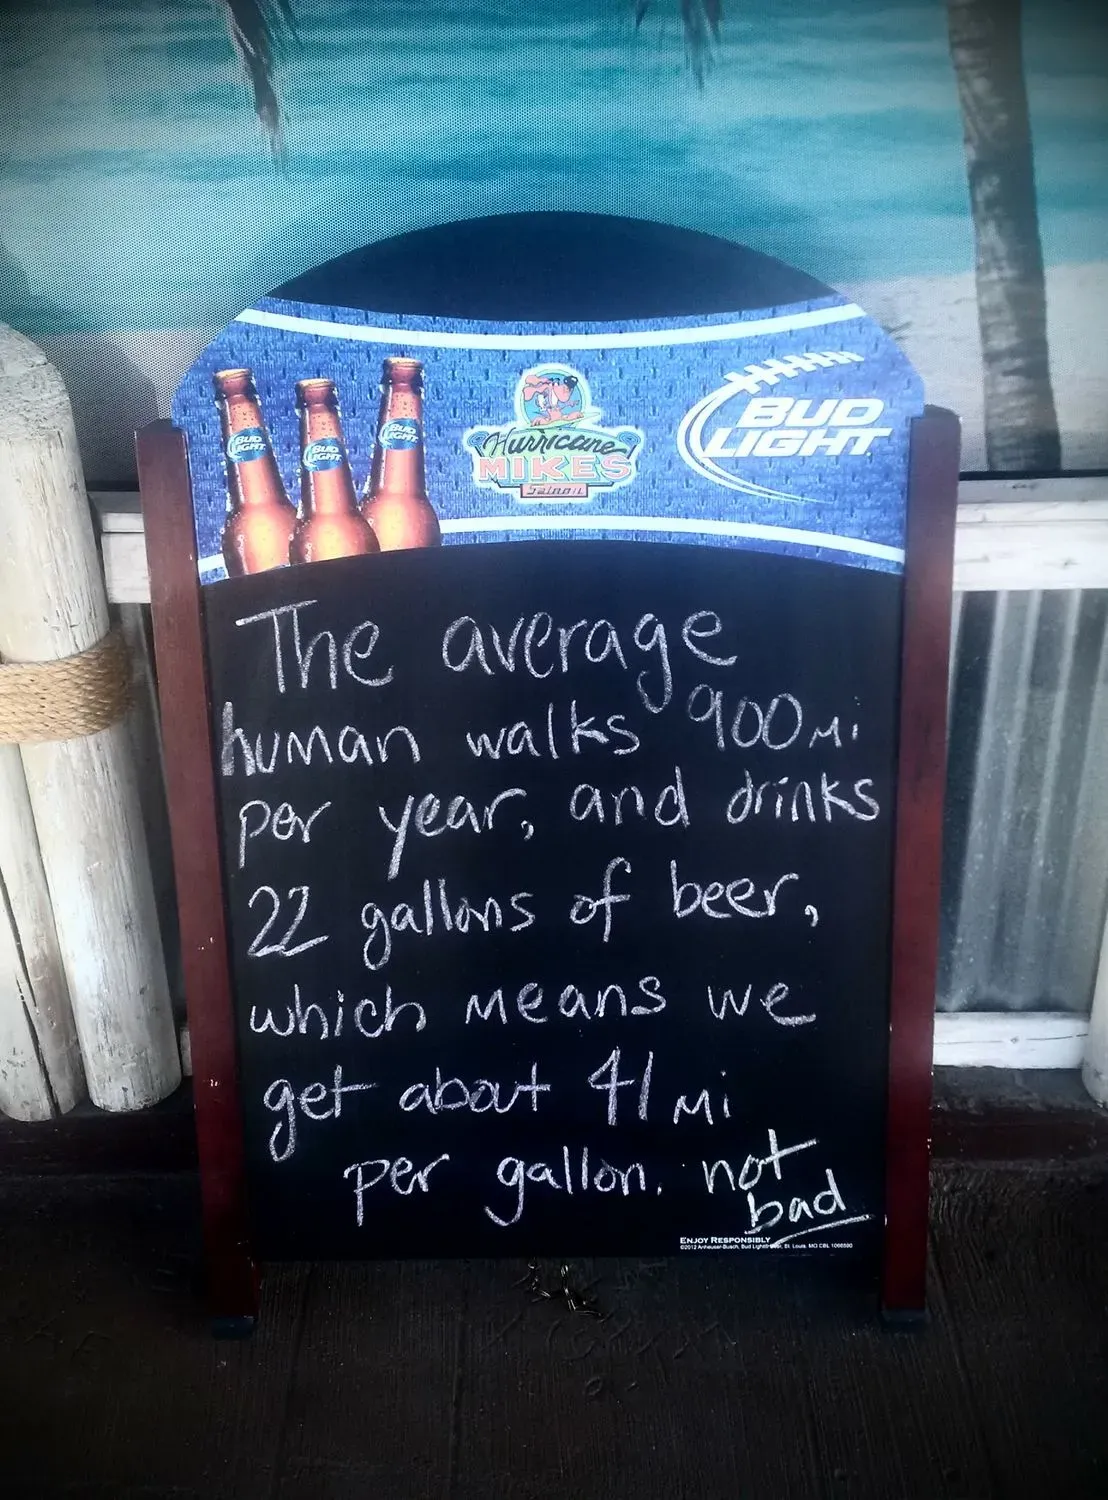 BUD LIGHT
BUD LIGHT
BUD LIGHT
Hurricane
MIKES
Saloon
BUD
LIGHT
The average
human walks 900 mi
per year, and drinks
22 gallons of beer,
which means we
get about 41 mi
per gallon. not
bad
ENJOY RESPONSIBLY
©2012 Anheuser-Busch, Bud Light® Beer, St. Louis, MO CBL 1066590